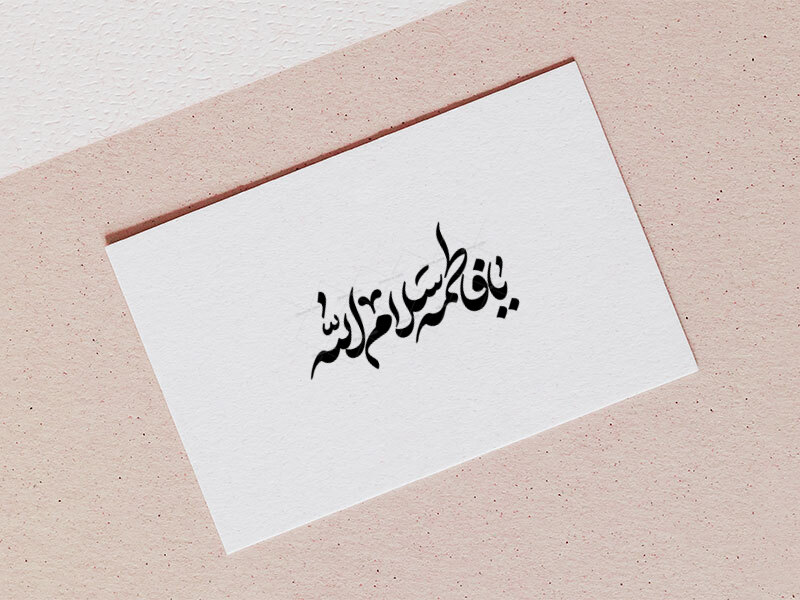 یا فاطمه سلام الله